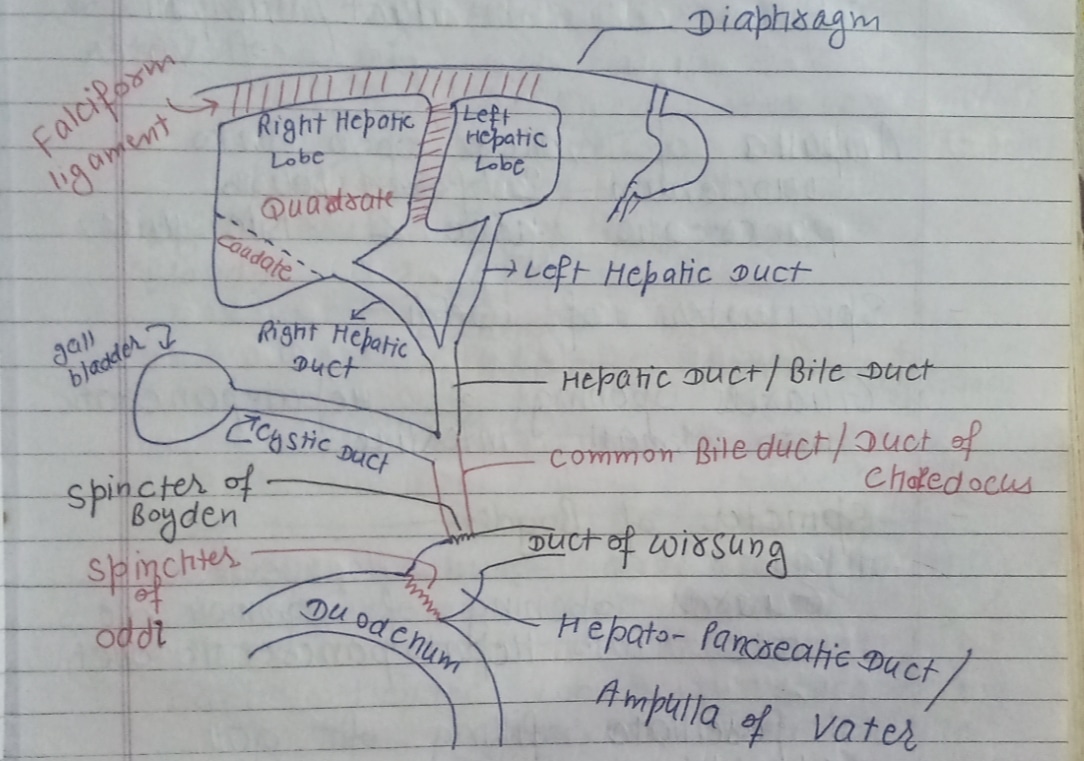 Diaphragm
Falciform
ligament
Right Hepatic
Lobe
Left
Hepatic
Lobe
Quadrate
Caudate
Left Hepatic Duct
Right Hepatic
Duct
gall
bladder
Hepatic Duct/Bile Duct
Cystic Duct
Common Bile duct/Duct of
Choledocus
Spincter of
Boyden
Duct of wirsung
Spinchter
of
oddi
Duodenum
Hepato-Pancreatic Duct/
Ampulla of Vater